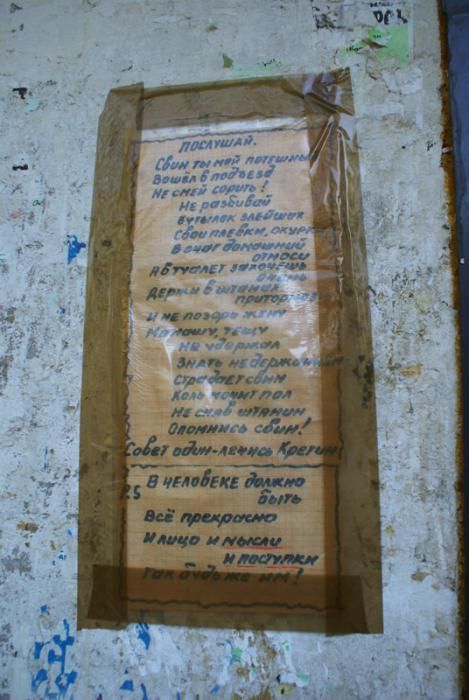 ПОСЛУШАЙ.
Свин ты мой потешный
Вошёл в подъезд
Не смей сорить!
Не разбивай
Бутылок злейших
Свои плевки, окурки
В очаг домашний
относи
А в туалет захочешь
очень
Держи в штанах
притормози
И не позорь жену
Мамашу, тёщу
Не удержал
Знать недержанием
Страдает свин
Коль мочит пол
Не сняв штанин
Опомнись свин!
Совет один-лечись Кретин!
P.S В ЧЕЛОВЕКЕ должно
быть
Всё прекрасно
И лицо и мысли
и поступки
Так будь же им!